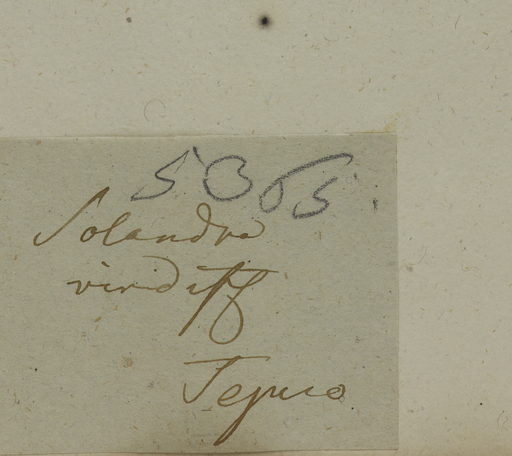 5865.
Solandra
viridiff
Tejuco